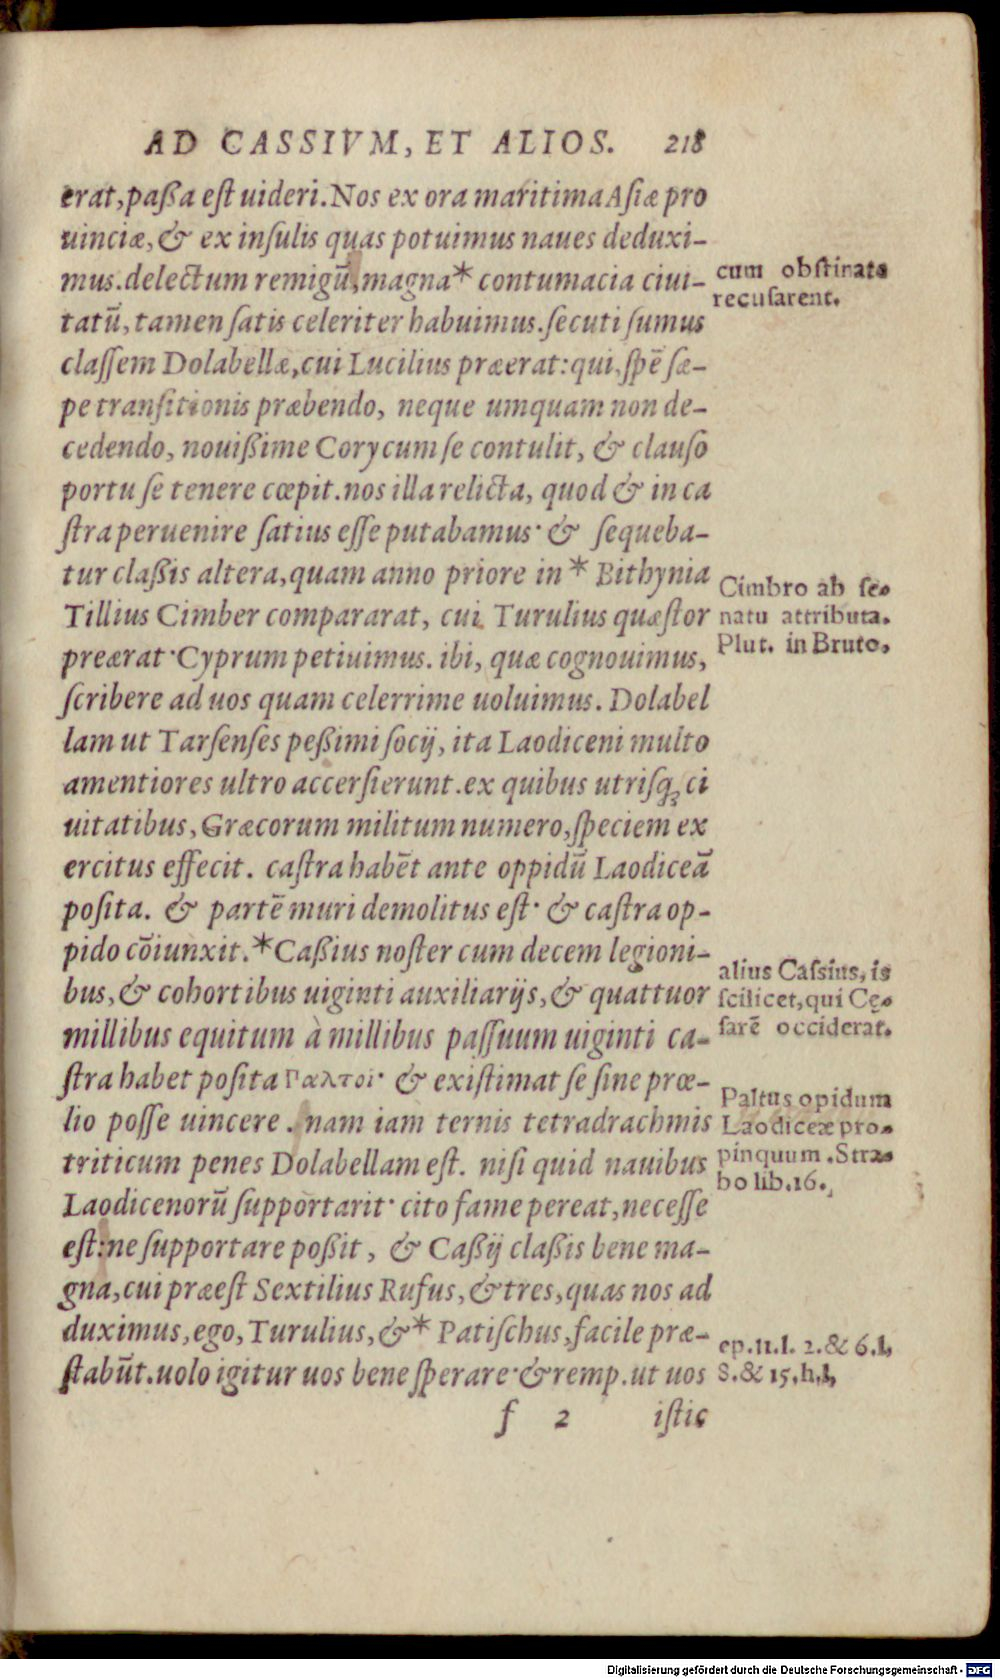 AD CASSIVM, ET ALIOS. 218
erat, paßa eſt uideri. Nos ex ora maritima Aſiæ pro
uinciæ, & ex inſulis quas potuimus naues deduxi-
mus. delectum remigū, magna* contumacia ciui-
tatū, tamen ſatis celeriter habuimus. ſecuti ſumus
claſſem Dolabellæ, cui Lucilius præerat: qui, ſpē ſæ-
pe tranſitionis præbendo, neque umquam non de-
cedendo, nouißime Corycum ſe contulit, & clauſo
portu ſe tenere cœpit. nos illa relicta, quod & in ca
ſtra peruenire ſatius eſſe putabamus· & ſequeba-
tur claßis altera, quam anno priore in* Bithynia
Tillius Cimber compararat, cui Turulius quæſtor
preærat· Cyprum petiuimus. ibi, quæ cognouimus,
ſcribere ad uos quam celerrime uoluimus. Dolabel
lam ut Tarſenſes peßimi ſocij, ita Laodiceni multo
amentiores ultro accerſierunt. ex quibus utriſq; ci
uitatibus, Græcorum militum numero, ſpeciem ex
ercitus effecit. caſtra habēt ante oppidū Laodiceā
poſita. & partē muri demolitus eſt· & caſtra op-
pido cōiunxit.* Caßius noſter cum decem legioni-
bus, & cohortibus uiginti auxiliarijs, & quattuor
millibus equitum à millibus paſſuum uiginti ca-
ſtra habet poſita Γαλτοι· & exiſtimat ſe ſine præ-
lio poſſe uincere. nam iam ternis tetradrachmis
triticum penes Dolabellam eſt. niſi quid nauibus
Laodicenorū ſupportarit· cito fame pereat, neceſſe
eſt: ne ſupportare poßit, & Caßij claßis bene ma-
gna, cui præeſt Sextilius Rufus, & tres, quas nos ad
duximus, ego, Turulius, &* Patiſchus, facile præ-
ſtabūt. uolo igitur uos bene ſperare· & remp. ut uos
f 2 iſtic
cum obſtinate
recuſarent.
Cimbro ab ſe-
natu attributa.
Plut. in Bruto.
alius Caſsius, is
ſcilicet, qui Cę-
ſarē occiderat.
Paltus opidum
Laodiceæ pro-
pinquum. Stra-
bo lib. 16.
ep. 11. l. 2. & 6. l.
8. & 15. h. l.
Digitalisierung gefördert durch die Deutsche Forschungsgemeinschaft - DFG